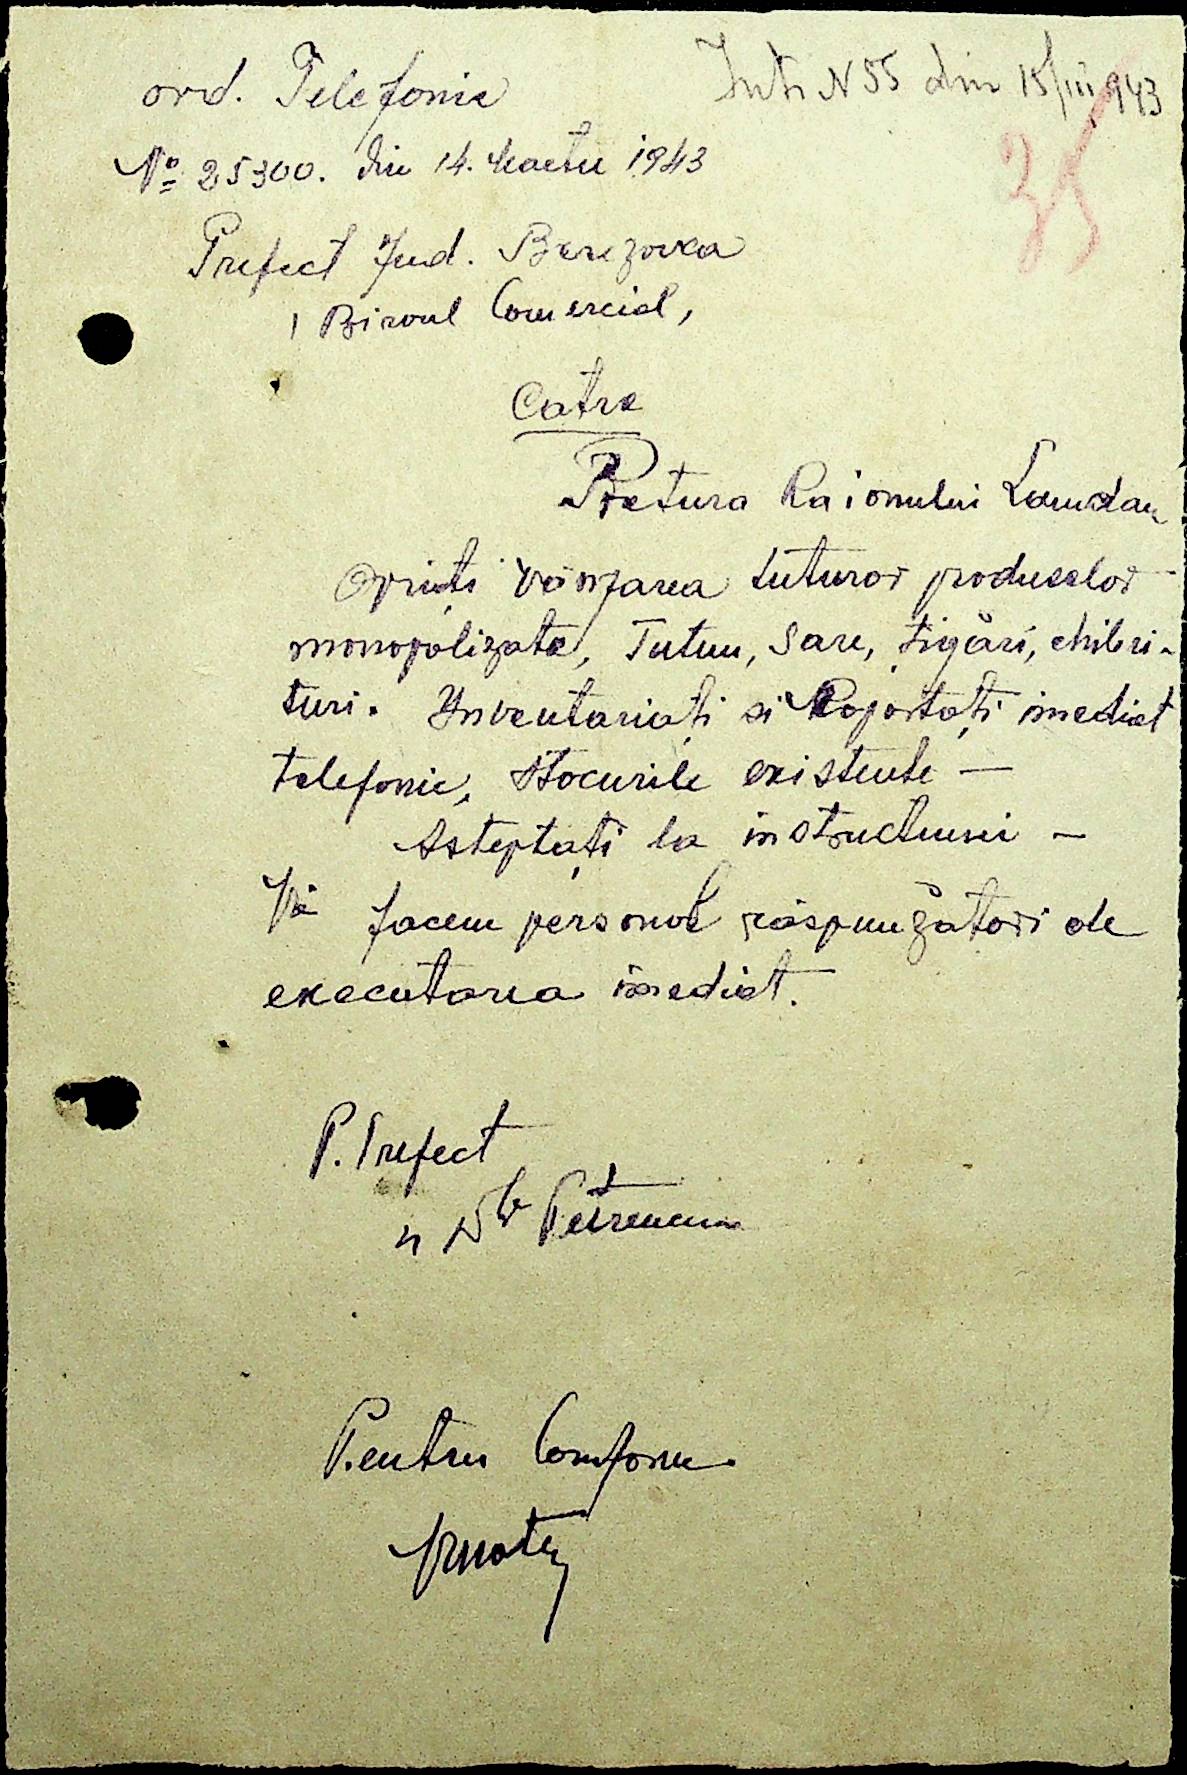 ord. Telefonic
Intr N 55 din 15/III 943
35
No 25300. din 14. Martie 1943
Prefect Jud. Berezovca
Biroul Comercial,
Catre
Pretura Raionului Landau
Opriți vânzarea tuturor produselor
monopolizate, Tutun, Sare, țigări, chibri-
turi. Inventariați si Raportați imediat
telefonic, Stocurile existente —
Asteptați la instructiuni —
Vă facem personal răspunzători de
executarea imediat.
P. Prefect
Petrencu
Pentru Conform.